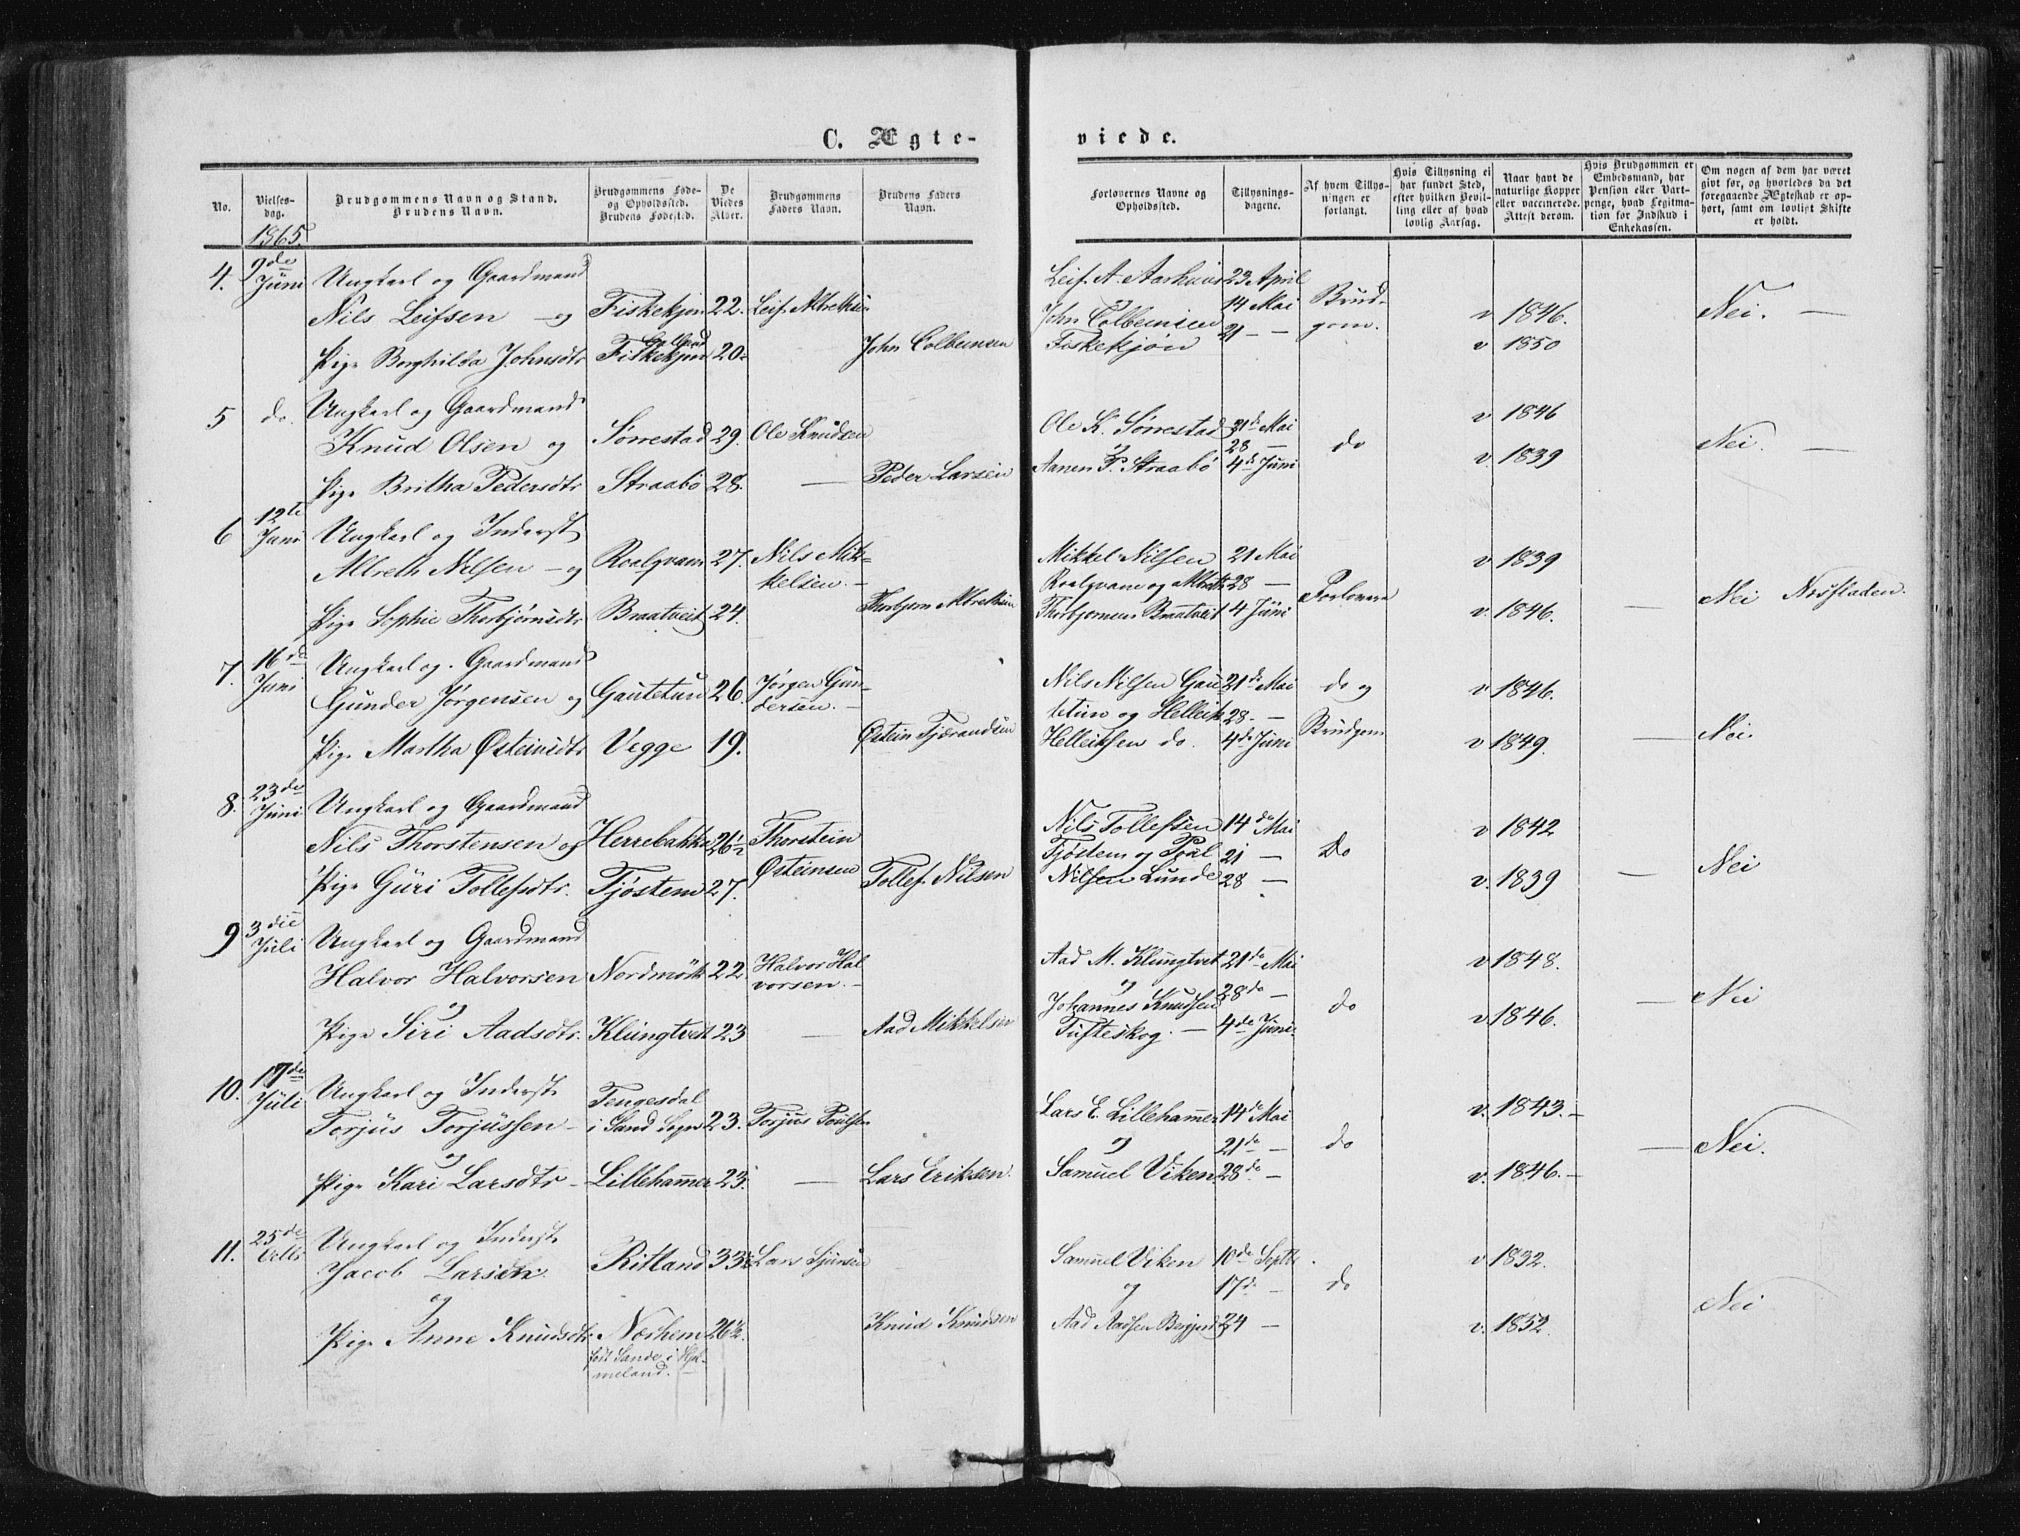 C. Ægte-
viede.
No.
Vielses-
dag.
Brudgommens Navn og Stand.
Brudens Navn.
Brudgommens Føde-
og Opholdssted.
Brudens Fødested.
De
Viedes
Alder.
Brudgommens
Faders Navn.
Brudens Faders
Navn.
Forlovernes Navne og
Opholdssted.
Tillysnings-
dagene.
Af hvem Tillys-
ningen er
forlangt.
Hvis Tillysning ei
har fundet Sted,
efter hvilken Bevil-
ling eller af hvad
lovlig Aarsag.
Naar havt de
naturlige Kopper
eller vaccinerede.
Attest derom.
Hvis Brudgommen er
Embedsmand, har
Pension eller Vart-
penge, hvad Legitima-
tion for Indskud i
Enkekassen.
Om nogen af dem har været
gift før, og hvorledes da det
foregaaende Ægteskab er op-
hørt, samt om lovligt Skifte
er holdt.
1865.
4. 9de Juni
Ungkarl og Gaardmand
Nils Leifsen – og
Pige Borghilda Johnsdtr
Fiskekjøn 22. Leif Albretsen
Fiskekjøn 20. John Colbeinsen
Leif A. Aarhuus 23 April
John Colbeinsen 14 Mai
Fiskekjøn 21 –
Brud-
gom.
v 1846.
v 1850
Nei. –
5 do.
Ungkarl og Gaardmand
Knud Olsen og
Pige Britha Pedersdtr
Sørrestad 29. Ole Knudsen
Straabø 28. – Peder Larsen
Ole K. Sørrestad 21de Mai
og 28 –
Aanen P. Straabø 4de Juni
do
v 1846
v. 1839
Nei. –
6 12te Juni
Ungkarl og Inderst
Albreth Nilsen – og
Pige Sophie Thorbjørnsdtr
Roalqvam 27. Nils Mik-
kelsen. –
Braatveit 24. Thorbjørn Albretsen
Mikkel Nilsen 21 Mai
Roalqvam og Albreth 28 –
Thorbjørnsen Braatveit 4 Juni
Forlovere
v 1839
v. 1846.
– Nei Nesfladen.
7. 16de Juni
Ungkarl og Gaardmand
Gunder Jørgensen og
Pige Martha Østeinsdtr
Gautetun 26. Jørgen Gun-
dersen. –
Vegge 19. Østein Tjærandsen
Nils Nilsen Gau- 21de Mai
tetun og Helleik 28. –
Helleiksen do. 4de Juni
do og
Brudgom
v 1846.
v 1849.
– Nei.
8. 23de Juni
Ungkarl og Gaardmand
Nils Thorstensen og
Pige Guri Tollefsdtr.
Herrebakka 26½ Thorstein
Østeinsen
Tjøstem 27. Tollef Nilsen
Nils Tollefsen 14de Mai
Tjøstem og Poul 21 –
Nilsen Lunde 28 –
Do
v 1842
v. 1839
– Nei
9 3die Juli
Ungkarl og Gaardmand
Halvor Halvorsen
og
Pige Siri Aadsdtr.
Nordmørk 22. Halvor Hal
vorsen. –
Klungtveit 23 – Aad Mikkelsen
Aad M. Klungtvet 21de Mai
og 28de –
Johannes Knudsen
Tufteskog. – 4de Juni.
do
v 1848.
v 1846.
– Nei
10. 17de Juli
Ungkarl og Inderst.
Torjus Torjussen –
og
Pige Kari Larsdtr –
Tengesdal
i Sand Sogn 23. Torjus Poulsen
Lillehammer 23. – Lars Eriksen.
Lars E. Lillehammer 14de Mai
og 21de –
Samuel Viken 28de –
do
v. 1843. –
v. 1846. –
– Nei.
11. 25de
Ungkarl og Inderst.
Jacob Larsen
og
Pige Anne Knudsdtr
Ritland 33½ Lars Sjursen
Nærhem 26½
født Sande i Hjel-
meland.
Knud Knudsen
Samuel Viken 10de Septbr.
og 17de –
Aad Aadsen 24 –
do
v 1832.
v. 1852.
Nei